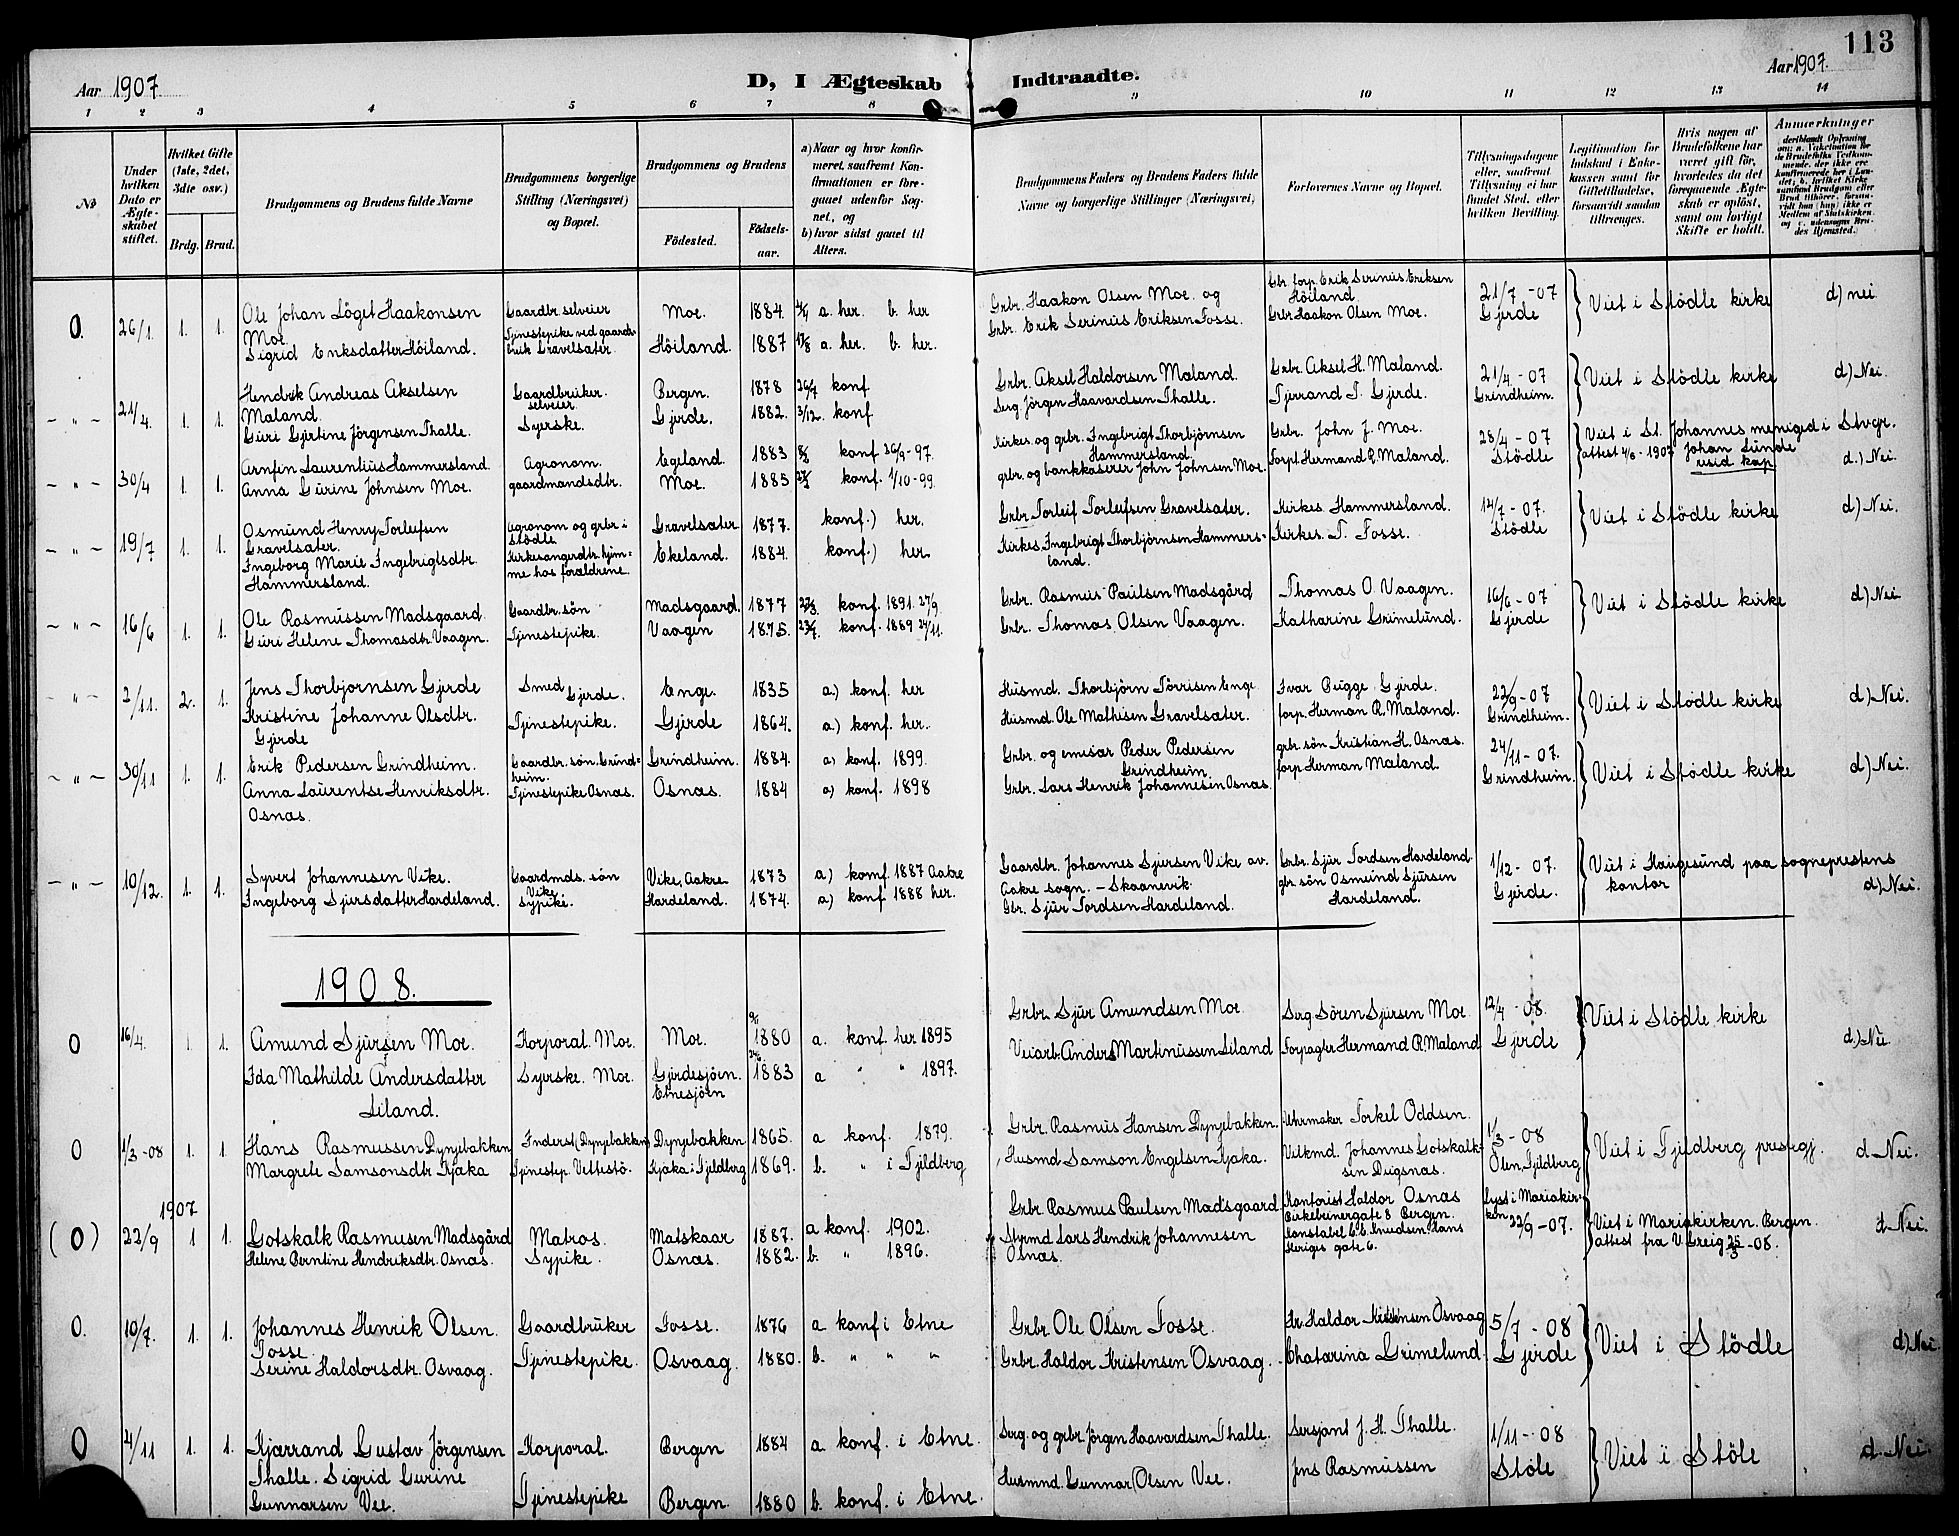 113
Aar 1907
D, I Ægteskab Indtraadte.
Aar 1907.
1 2 3 4 5 6 7 8 9 10 11 12 13 14
№
Under hvilken Dato er Ægteskabet stiftet.
Hvilket Gifte (1ste, 2det, 3die osv.)
Brdg. Brud.
Brudgommens og Brudens fulde Navne
Brudgommens borgerlige Stilling (Næringsvei) og Bopæl.
Brudgommens og Brudens
Födested.
Födselsaar.
a) Naar og hvor konfirmeret, saafremt Konfirmationen er foregaaet udenfor Sognet, og
b) hvor sidst gaaet til Alters.
Brudgommens Faders og Brudens Faders fulde Navne og borgerlige Stillinger (Næringsvei)
Forlovernes Navne og Bopæl.
Tillysningsdagene eller, saafremt Tillysning ei har fundet Sted, efter hvilken Bevilling.
Legitimation for Indskud i Enkekassen samt for Giftetilladelse, forsaavidt saadan tiltrænges.
Hvis nogen af Brudefolkene har været gift för, hvorledes da det foregaaende Ægteskab er oplöst, samt om lovligt Skifte er holdt.
Anmærkninger
0. 26/1 1. 1. Ole Johan Löget Haakonsen Gaardbr. selveier Moe. 1884. a. her b. her Grbr. Haakon Olsen Moe. og Gbr. forp. Erik Serinus Eriksen Höiland 21/7 - 07 Viet i Stödle kirke d) nei
Moe.
Sigrid Eriksdatter Höiland. Tjenestepike ved gaardbr. Erik Gravelsæter. Höiland. 1887 a. her. b. her. Grbr. Erik Serinus Eriksen Fosse. Grbr Haakon Olsen Moe. Gjerde
- „ - 21/4. 1. 1. Hendrik Andreas Akselsen Gaardbruker. selveier Bergen. 1878 26/7 konf Grbr. Aksel Haldorsen Maland. Grbr. Aksel H. Maland. 21/4 - 07 Viet i Stödle kirke d) Nei.
Maland.
Guri Gjertine Jörgensen Thalle. Syerske. Gjerde. 1882. 3/12. konf Serg. Jörgen Haavardsen Thalle. Tjerrand T. Gjerde. Grindheim.
- „ - 30/4 1. 1. Arnfin Laurentius Hammersland. Agronom. Egeland. 1883 konf 26/9-97. Kirkes. og grbr. Ingebrigt Thorbjörnsen Hammersland, Grbr. John J. Moe. 28/4 - 07 Viet i St. Johannes menighed i Stvgr. attest 4/6 - 1907 Johan Lunde resid kap d.) Nei.
Anna Gurine Johnsen Moe. gaardmandsdtr. Moe. 1885 konf. 1/10-99. grbr. og bankkaserer John Johnsen Moe. Forp. Hermand R. Maland. Stödle
- „ - 19/7 1. 1. Osmund Henry Torleifsen Agronom og grbr i Stödle Gravelsæter 1877. konf.) her. Grbr Torleif Torleifsen Gravelsæter. Kirkes. Hammersland. 14/7 - 07. Viet i Stödle kirke d) Nei.
Gravelsæter.
Ingeborg Marie Ingebrigtsdtr. Kirkesangerdtr. hjemme hos forældrene. Ekeland. 1884. konf.) her Kirkes. Ingebrigt Thorbjörnsen Hammersland. Kirkes. T. Fosse. Stödle
Hammersland.
- „ - 16/6 1. 1. Ole Rasmussen Madsgaard Gaardbr. sön Madsgaard. 1877 konf. 1891. 27/9. Grbr. Rasmus Paulsen Madsgård Thomas O. Vaagen. 16/6 - 07 Viet i Stödle kirke d) Nei
Guri Helene Thomasdtr. Vaagen. Tjenestepike. Vaagen 1875. konf. 1889 24/11. Grbr. Thomas Olsen Vaagen. Katharine Grimelund. Gjerde
- „ - 2/11. 2. 1. Jens Thorbjornsen Gjerde Smed Gjerde. Enge. 1835 a.) konf. her Husmd. Thorbjörn Törrisen Enge Ivar Bugge Gjerde. 22/9 - 07 Viet i Stödle kirke d) Nei.
Kristine Johanne Olsdtr. Tjenestepike. Gjerde 1864. a.) konf. her. Husmd. Ole Mathisen Gravelsæter. forp. Herman R. Maland. Grindheim.
Gjerde
- „ - 30/11 1. 1. Erik Pedersen Grindheim. Gaardbr. sön. Grindheim. Grindheim. 1884. a) konf. 1899. Grbr. og emisær Peder Pedersen Grindheim. grbr. sön Kristian H. Osnas. 24/11 - 07. Viet i Stödle kirke d) Nei.
Anna Laurentse Henriksdtr. Tjenestepike Osnas. Osnas. 1884 a) konf. 1898 Grbr. Lars Henrik Johannesen Osnas. forp Herman Maland. Grindheim.
Osnas.
- „ - 10/12. 1. 1. Syvert Johannesen Vike. Gaardmds. sön Vike Vike, Aakre 1873 a) konf. 1887 Aakre Gaardbr. Johannes Sjursen Vike av. Aakre sogn. - Skaanevik. Grbr. Sjur Tordsen Hardeland. 1/12 - 07. Viet i Haugesund paa sogneprestens kontor d) Nei.
Ingeborg Sjursdatter Hardeland. Sypike. Hardeland. 1874. a) konf 1888 her. Gbr. Sjur Tordsen Hardeland. gbr. sön Osmund Sjursen Hardeland. Gjerde.
1908.
0 16/4. 1. 1. Amund Sjursen Moe. Korporal. Moe. Moe. 1880 a. konf. her 1895 Grbr. Sjur Amundsen Moe Serg. Sören Sjursen Moe. 12/4 - 08. Viet i Stödle kirke d.) Nei
Ida Mathilde Andersdatter Syerske. Moe. Gjerdesjöen. Etnesjöen 1883 a „ „ 1897. Veiarb. Anders Martinussen Liland Forpagter Hermand R. Maland Gjerde
Liland.
0 1/3 -08 1. 1. Hans Rasmussen Dynjebakken Inderst (Dynjebakken) Dynjebakken 1865. a konf. 1879. Grbr. Rasmus Hansen Dynjebakken. Uhrmaker Torkel Oddsen. 1/3 - 08 Viet i Fjeldberg prestegj. d. Nei.
Margrete Samsonsdtr. Kjaka Tjenestep. Vettestö. Kjaka i Fjeldberg 1869. b. „ i Fjeldberg Husmd Samson Engelsen Kjaka. Veitkmd. Johannes Gotskalksen Dugsnas. Ölen, Fjeldberg
1907
(0) 22/9 1 1. Gotskalk Rasmusen Madsgård Matros. Matskaar 1887. a konf. 1902. Grbr Rasmus Paulsen Madsgaard Kontorist Haldor Osnas Birkebeinergate 8 Bergen. Lyst i Mariakirken 22/9 - 07. Viet i Mariakirken. Bergen. d. Nei.
Helene Berntine Hendriksdtr. Osnas. Sypike. Osnas. 1882. b. „ 1896. Styrmd Lars Hendrik Johannesen Osnas. Konstabel C. C. Knudsen. Hans Heriges gate 6. attest fra V. Greig 25/3 -08.
0. 10/7. 1. 1. Johannes Henrik Olsen. Gaardbruker Fosse. 1876 a konf i Etne Grbr. Ole Olsen Fosse. Gr. Haldor Kristensen Osvaag 5/7 - 08 Viet i Stödle d) Nei.
Fosse.
Serine Haldorsdtr. Osvaag. Tjenestepike. Osvaag. 1880. b. „ „ „ Grbr. Haldor Kristensen Osvaag. Chatarina Grimelund. Gjerde
0 4/11 1. 1. Kjærrand Gustav Jörgensen Korporal. Bergen 1884 a. konf. i Etne. Serg. og grbr. Jörgen Haavardsen Thalle. Sersjant J. H. Thalle. 1/11 - 08 Viet i Stöle d. Nei.
Thalle. Sigrid Gurine
Gunnarsen Vee. Tjenestepike Bergen. 1880 b. konf. i Etne. Husmnd. Gunnar Olsen Vee. Jens Rasmussen Stöle